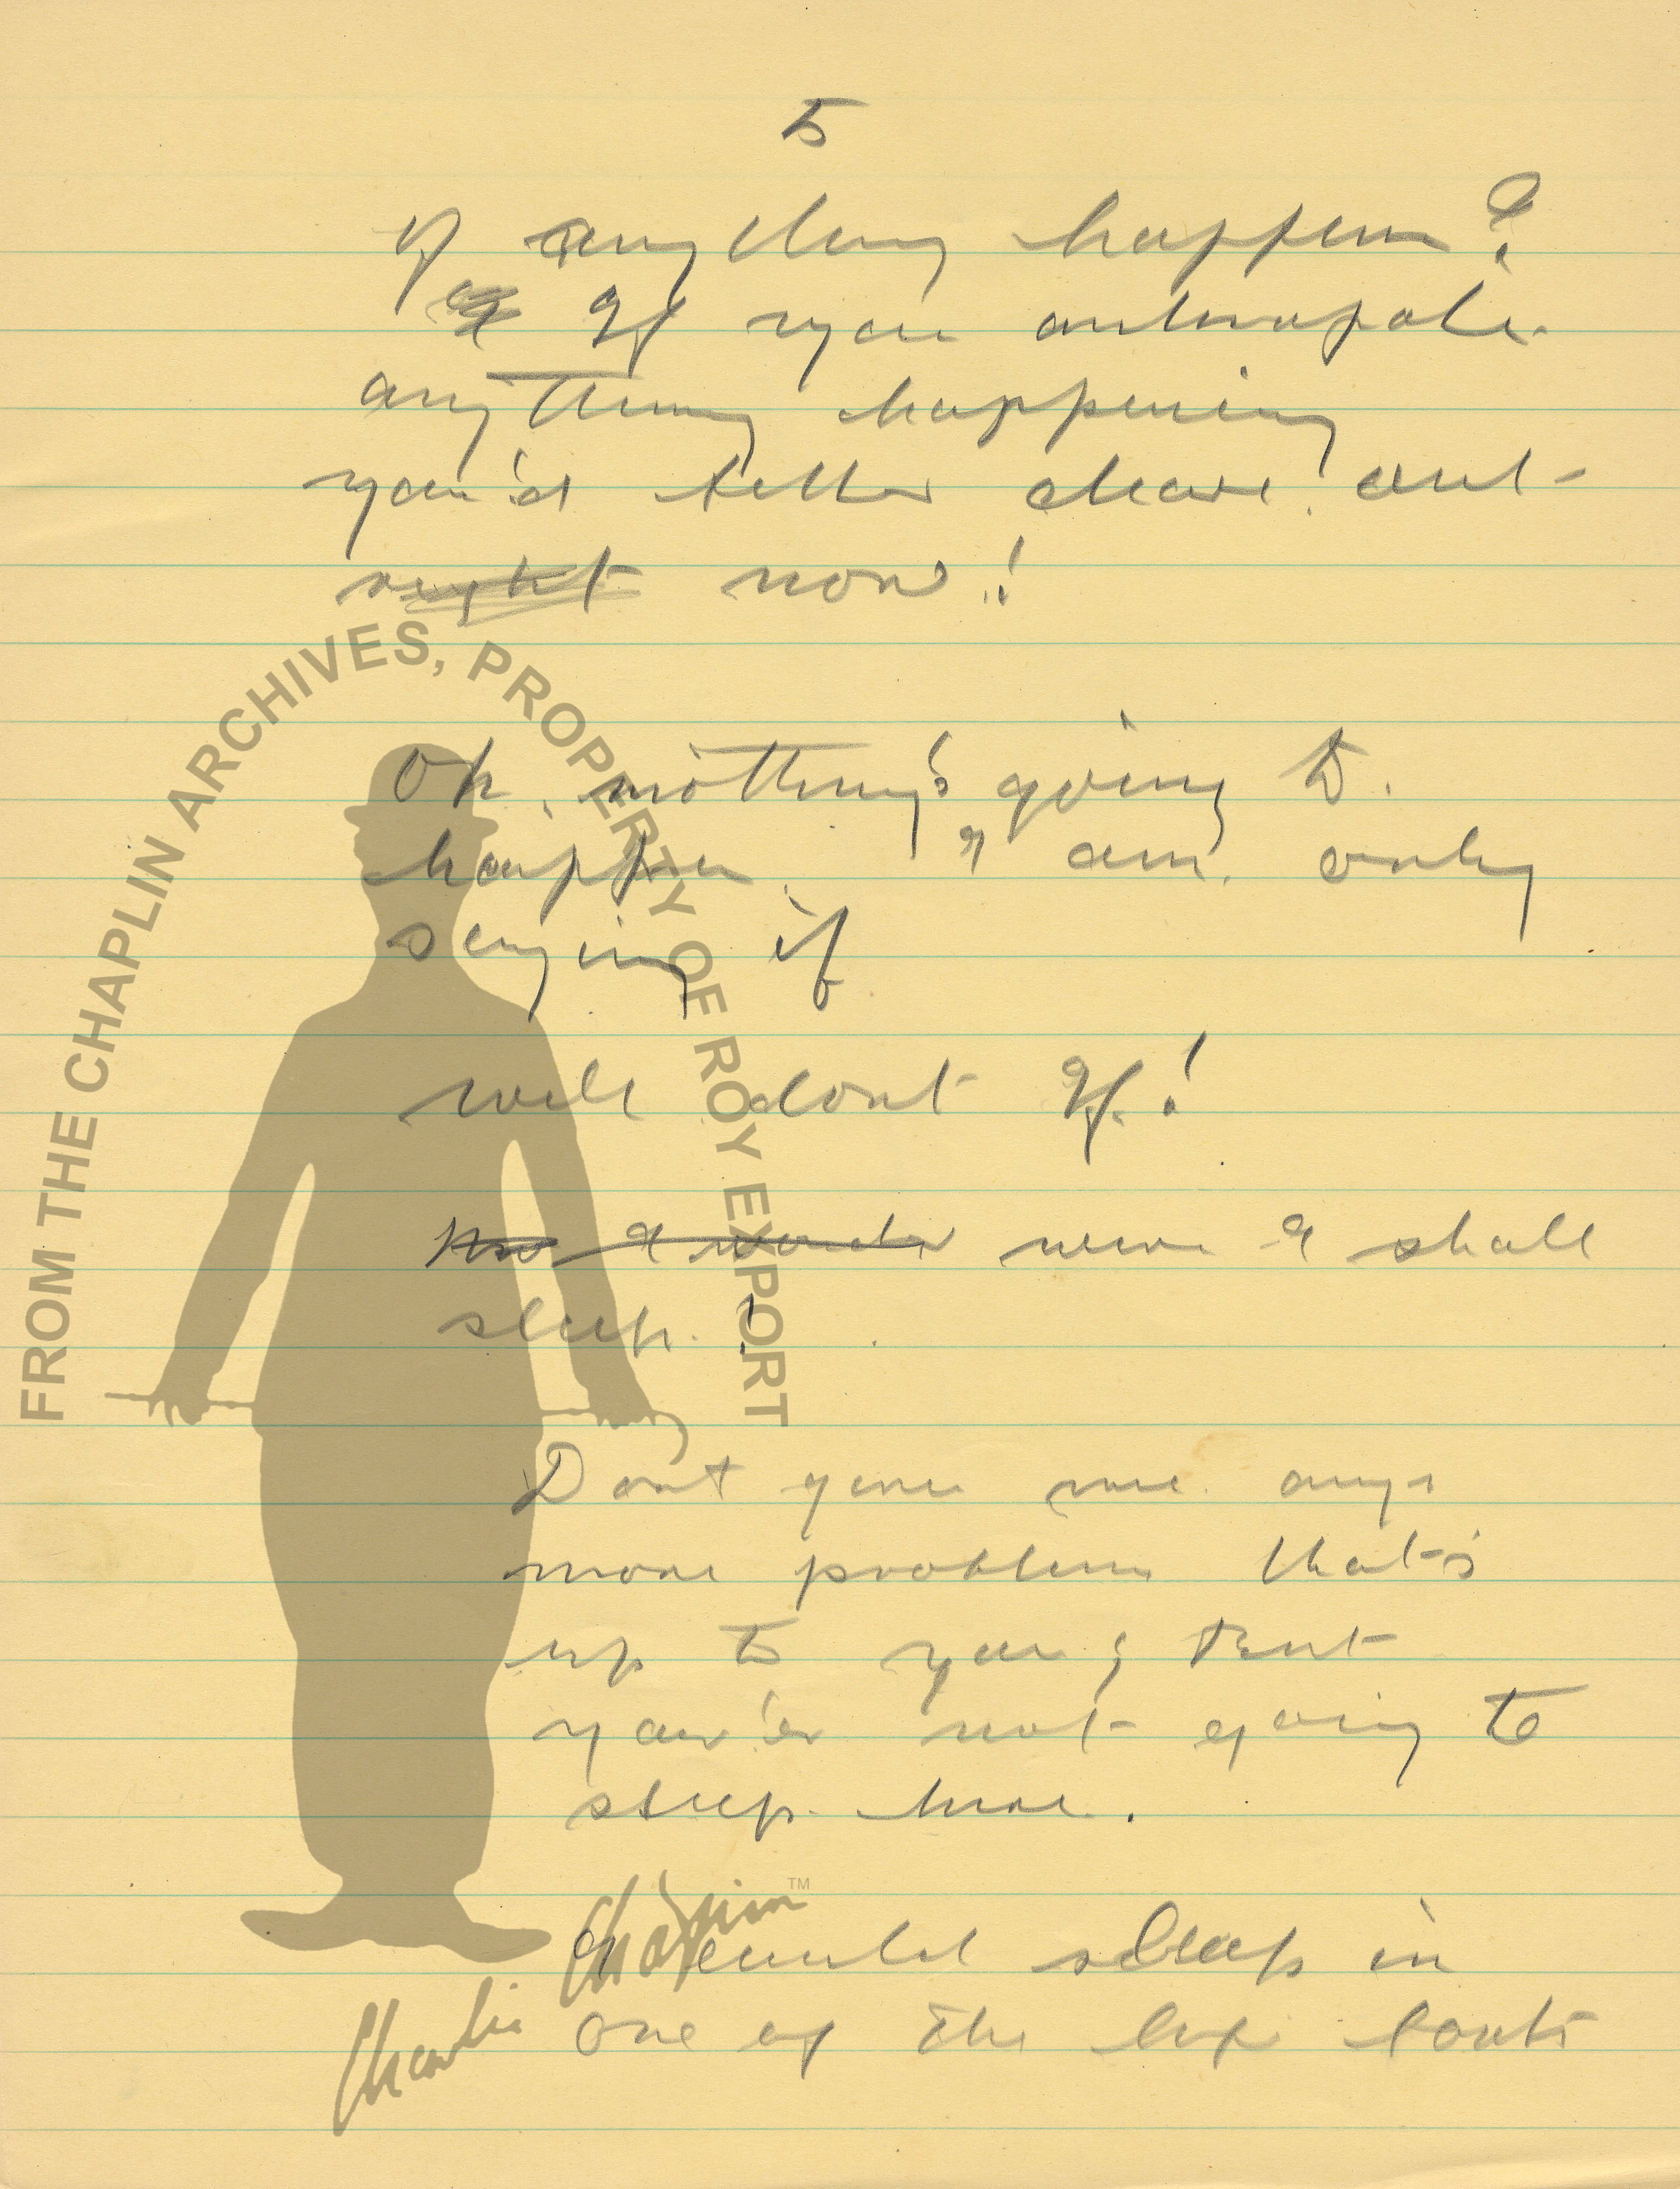 5
if anything happens?
If you anticipate
anything happening
you'd better clear out
right now!
Oh, nothing's going to
happen. I am only
saying if
well dont If!
where I shall
sleep.!
Dont give me any
more problems that's
up to you, but
you'r not going to
sleep here.
I could sleep in
one of the life boats
FROM THE CHAPLIN ARCHIVES, PROPERTY OF ROY EXPORT
Charlie Chaplin™